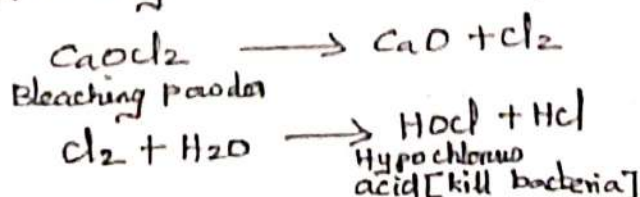 CaOCl2 → CaO + Cl2
Bleaching powder
Cl2 + H2O → HOCl + HCl
Hypochlorous
acid [kill bacteria]